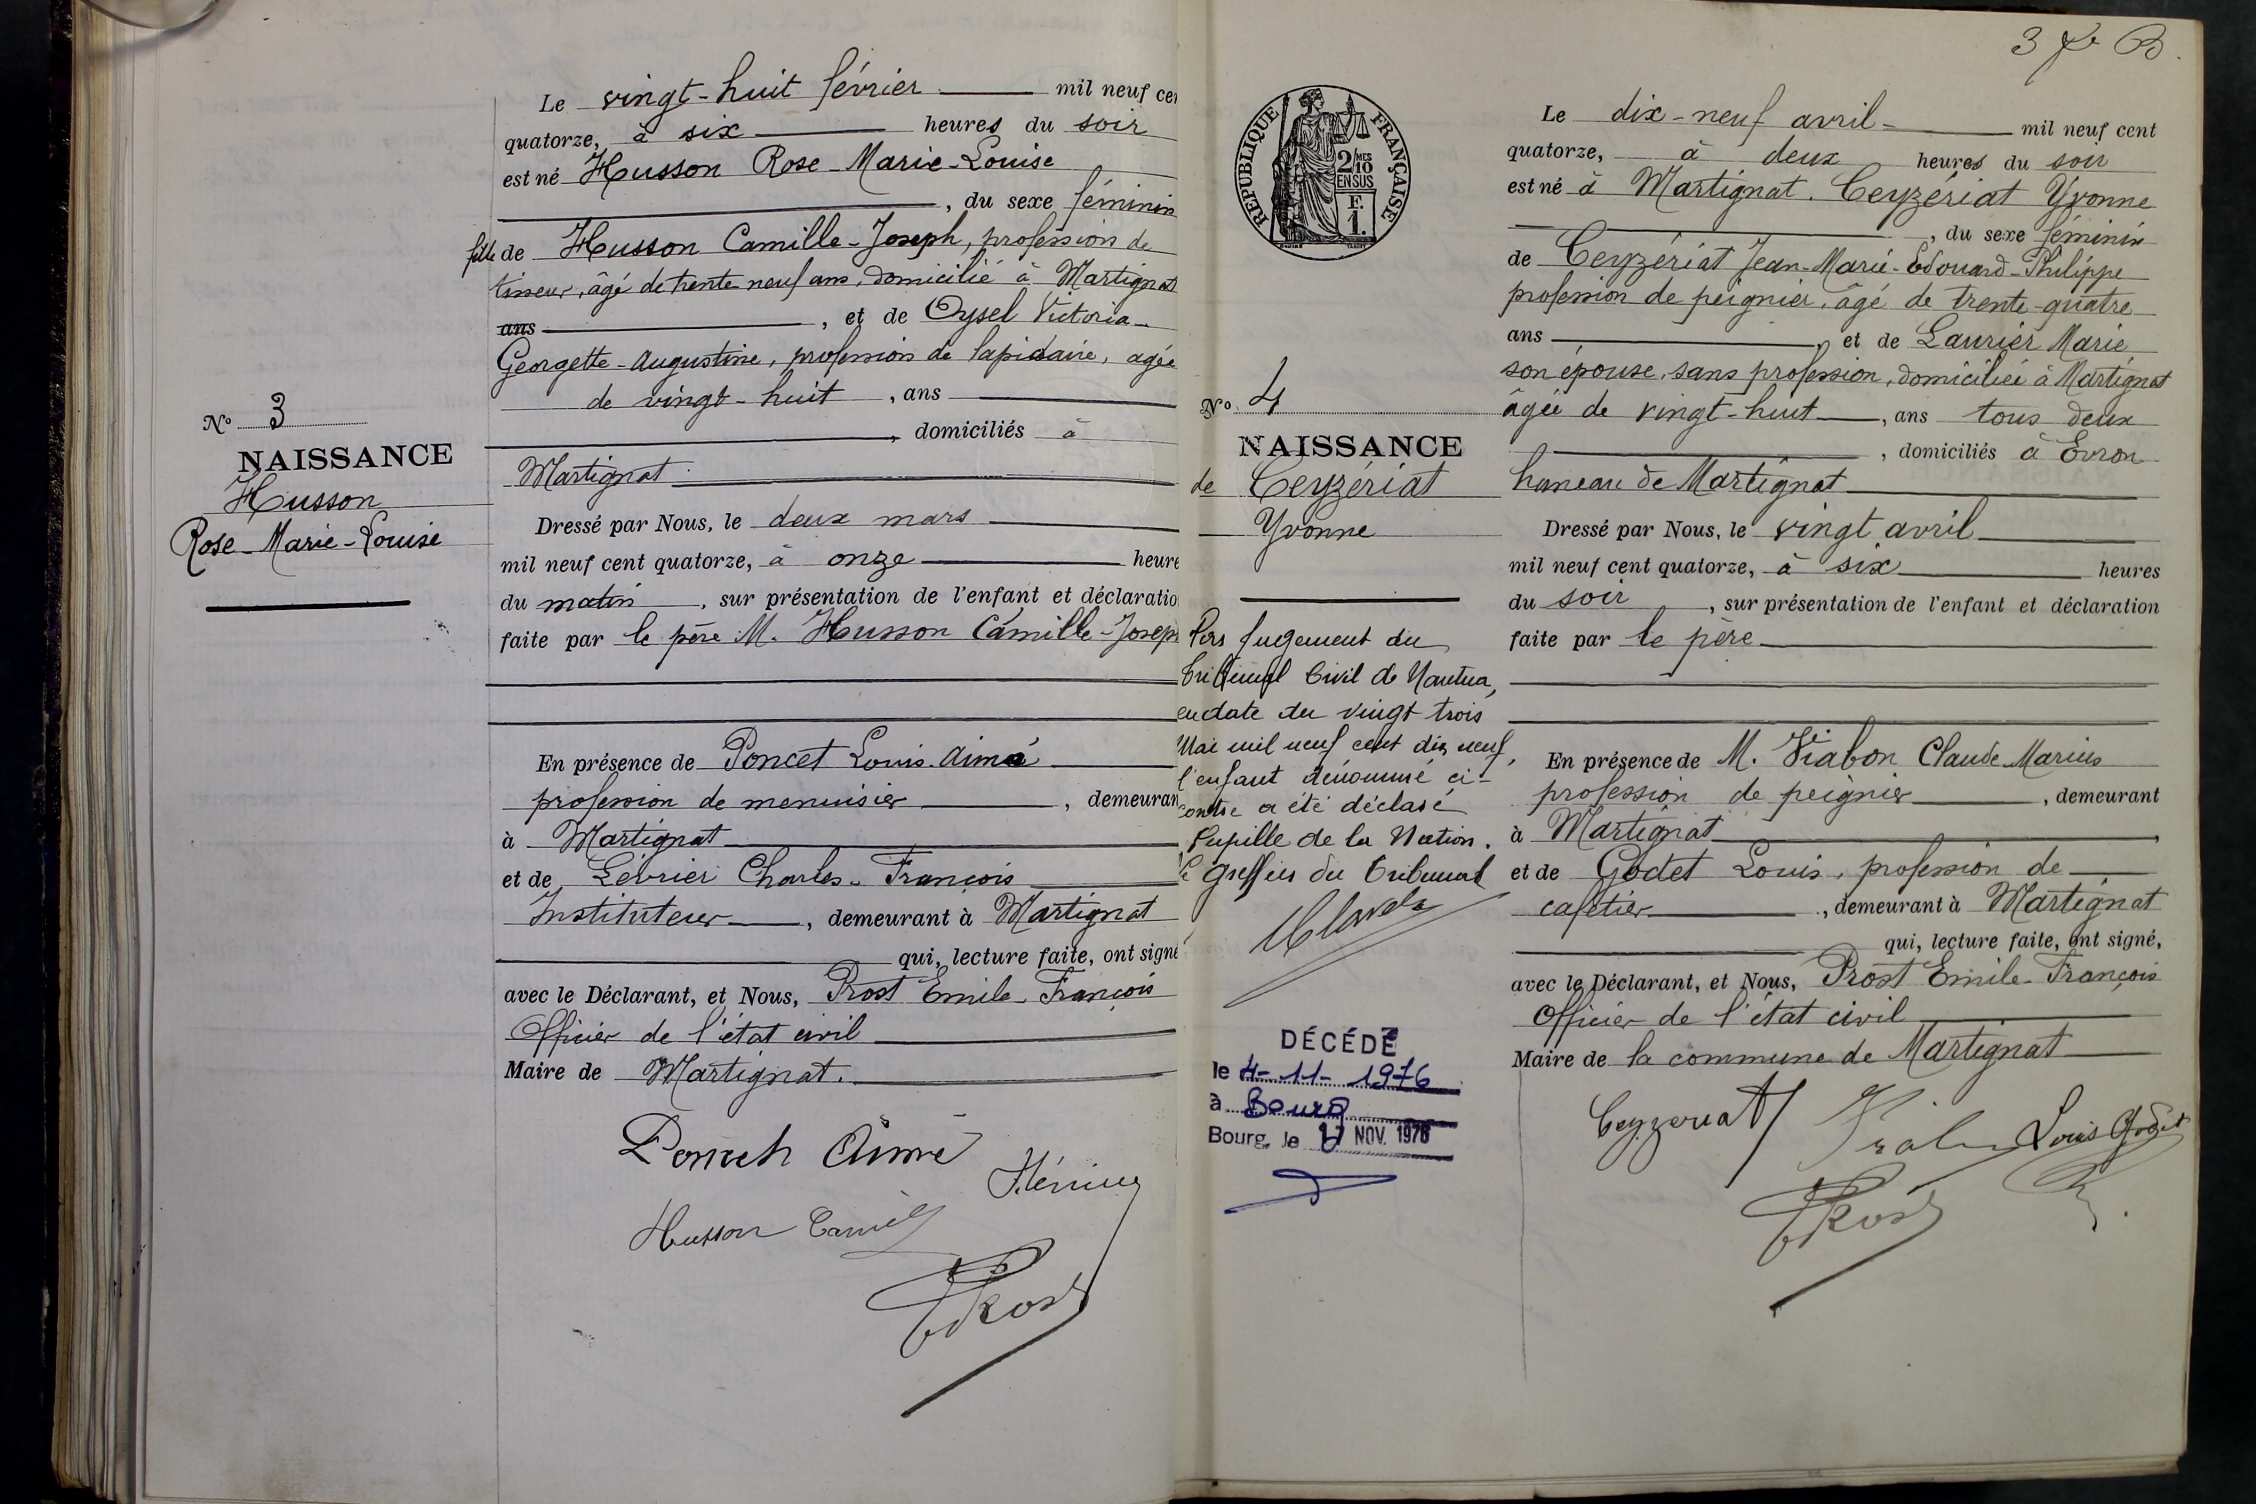 Le vingt-huit février mil neuf cen
quatorze, à six heures du soir
est né Husson Rose-Marie-Louise
, du sexe féminin
fille de Husson Camille-Joseph, profession de
tisseur, âgé de trente neuf ans, domicilié à Martignat
ans, et de Oysel Victoria
Georgette-Augustine, profession de lapidaire, agée
de vingt-huit, ans
, domiciliés à
Martignat.
N° 3
NAISSANCE
Husson
Rose-Marie-Louise
Dressé par Nous, le deux mars
mil neuf cent quatorze, à onze heure
du matin, sur présentation de l'enfant et déclaratio
faite par le père M. Husson Camille-Joseph
En présence de Poncet Louis Aimé
profession de menuisier, demeuran
à Martignat
et de Lévrier Charles-François
Instituteur, demeurant à Martignat
qui, lecture faite, ont signé
avec le Déclarant, et Nous, Prost Emile-François
Officier de l'état civil
Maire de Martignat.
Aimé
Husson Camille
Prost
3
RÉPUBLIQUE FRANÇAISE
2/10 MES
EN SUS
F.
1.
Le dix-neuf avril mil neuf cent
quatorze, à deux heures du soir
est né à Martignat. Ceyzériat Yvonne
, du sexe féminin
de Ceyzériat Jean-Marie-Edouard-Philippe
profession de peignier, âgé de trente-quatre
ans, et de Laurier Marie
son épouse, sans profession, domiciliée à Martignat
âgée de vingt-huit, ans tous deux
, domiciliés à Evron
hameau de Martignat
N° 4
NAISSANCE
de Ceyzériat
Yvonne
Dressé par Nous, le vingt avril
mil neuf cent quatorze, à six heures
du soir, sur présentation de l'enfant et déclaration
faite par le père
En présence de M. Viabon Claude Marius
profession de peignier, demeurant
à Martignat,
et de Godet Louis, profession de
cafetier, demeurant à Martignat
qui, lecture faite, ont signé,
avec le Déclarant, et Nous, Prost Emile-François
Officier de l'état civil
Maire de la commune de Martignat
jugement du
Tribunal Civil de Nantua,
en date du vingt trois
Mai mil neuf cent dix neuf,
l'enfant dénommé ci-
contre a été déclaré
Pupille de la Nation.
le greffier du Tribunal
DÉCÉDÉ
le 4-11-1976
à Bourg
Bourg, le NOV. 1976
Ceyzeriat
Louis Godet
Prost